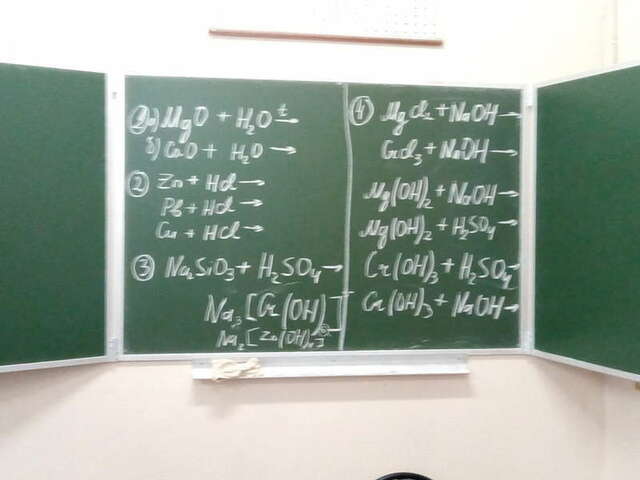 а) MgO + H₂O t→
б) CaO + H₂O →
② Zn + HCl →
Pb + HCl →
Cu + HCl →
③ Na₂SiO₃ + H₂SO₄ →
Na₃[Cr(OH)₆]
Na₂[Zn(OH)₄]
④ MgCl₂ + NaOH →
CrCl₃ + NaOH →
Mg(OH)₂ + NaOH →
Mg(OH)₂ + H₂SO₄ →
Cr(OH)₃ + H₂SO₄ →
Cr(OH)₃ + NaOH →